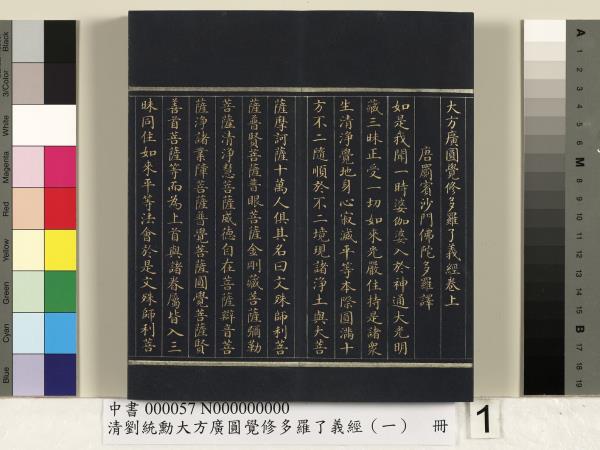 大方廣圓覺修多羅了義經卷上
唐罽賓沙門佛陀多羅譯
如是我聞一時婆伽婆入於神通大光明
藏三昧正受一切如來光嚴住持是諸衆
生清淨覺地身心寂滅平等本際圓滿十
方不二隨順於不二境現諸淨土與大菩
薩摩訶薩十萬人俱其名曰文殊師利菩
薩普賢菩薩普眼菩薩金剛藏菩薩彌勒
菩薩清淨慧菩薩威德自在菩薩辯音菩
薩淨諸業障菩薩普覺菩薩圓覺菩薩賢
善首菩薩等而為上首與諸眷屬皆入三
昧同住如來平等法會於是文殊師利菩
中書 000057 N000000000
清劉統勳大方廣圓覺修多羅了義經（一） 冊
1
Black
3/Color
White
Magenta
Red
Yellow
Green
Cyan
Blue
A
1
2
3
4
5
6
M
8
9
10
11
12
13
14
15
B
17
18
19